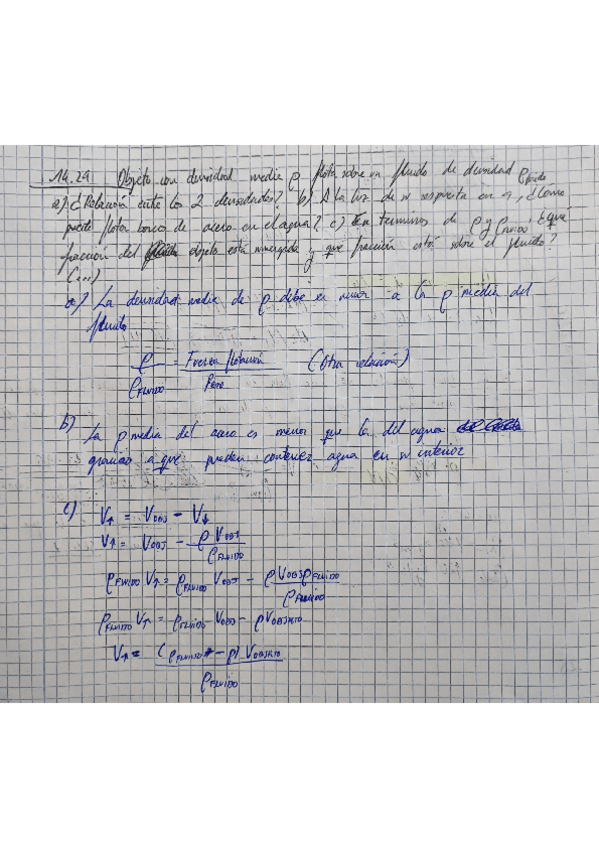 14.29 Objeto con densidad media ρ flota sobre un fluido de densidad ρfluido
a) ¿Relación entre las 2 densidades? b) A la luz de su respuesta en a, ¿Como
puede flotar barco de acero en el agua? c) En terminos de ρ y ρFLUIDO ¿qué
fracción del objeto está sumergida y que fracción está sobre el fluido?
(...)
a) La densidad media de ρ debe ser menor a la ρ media del
fluido
ρ / ρFLUIDO = Fuerza flotación / Peso (Otra relación)
b) La ρ media del acero es menor que la del agua
gracias a que pueden contener agua en su interior
c) V↑ = VOBJ - V↓
V↑ = VOBJ - ρ VOBJ / ρFLUIDO
ρFLUIDO V↑ = ρFLUIDO VOBJ - ρ VOBJ ρFLUIDO / ρFLUIDO
ρFLUIDO V↑ = ρFLUIDO VOBJ - ρ VOBJETO
V↑ = (ρFLUIDO - ρ) VOBJETO / ρFLUIDO